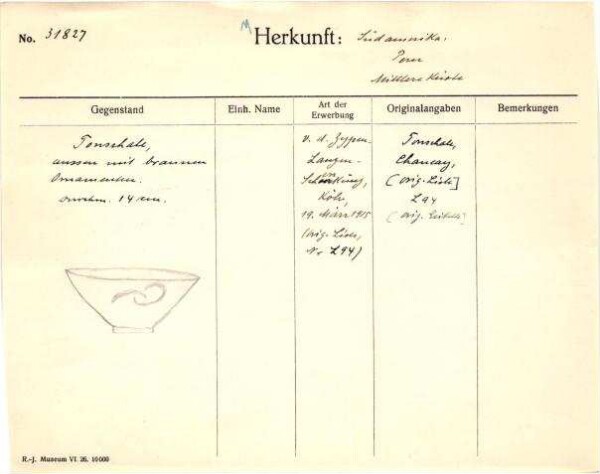 No. 31827
Herkunft: Südamerika.
Peru
Mittlere Küste
Gegenstand
Einh. Name
Art der Erwerbung
Originalangaben
Bemerkungen
Tonschale,
aussen mit braunen
Ornamenten.
14 cm.
v. d. Zypen-
Langen-
Schenkung,
Köln,
19. März 1915
(orig. Liste,
No L94)
Tonschale,
Chancay,
(orig. Liste]
L94
(orig.
R.-J. Museum VI. 26. 10000